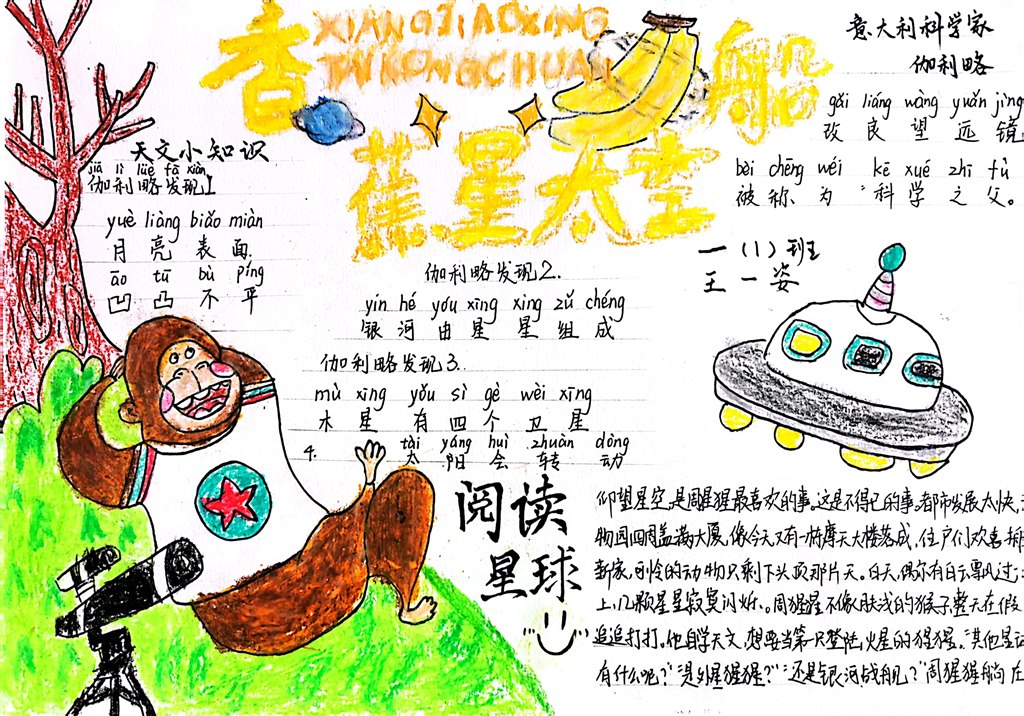 XIANGJIAOXING
TAIKONGCHUAN
香蕉星太空船
意大利科学家
伽利略
gǎi liáng wàng yuǎn jìng
改良望远镜
bèi chēng wéi kē xué zhī fù
被称为“科学之父。
一(1)班
王一姿
天文小知识
jiā lì lüè fā xiàn
伽利略发现1
yuè liàng biǎo miàn
月亮表面.
āo tū bù píng
凹凸不平
伽利略发现2.
yín hé yóu xīng xing zǔ chéng
银河由星星组成
伽利略发现3.
mù xīng yǒu sì gè wèi xīng
木星有四个卫星
4.
tài yáng huì zhuàn dòng
太阳会转动
阅读
星球
仰望星空,是周猩猩最喜欢的事。这是不得已的事。都市发展太快,
物园四周盖满大厦,像今天又有一栋摩天大楼落成,住户们欢喜
新家,可怜的动物只剩下头顶那片天。白天,偶尔有白云飘过;
上,几颗星星寂寞闪烁。周猩猩不像肤浅的猴子,整天在假
追追打打,他自学天文,想要当第一只登陆火星的猩猩。“其他星
有什么呢?”“是外星猩猩?”“还是银河战舰?”周猩猩躺在